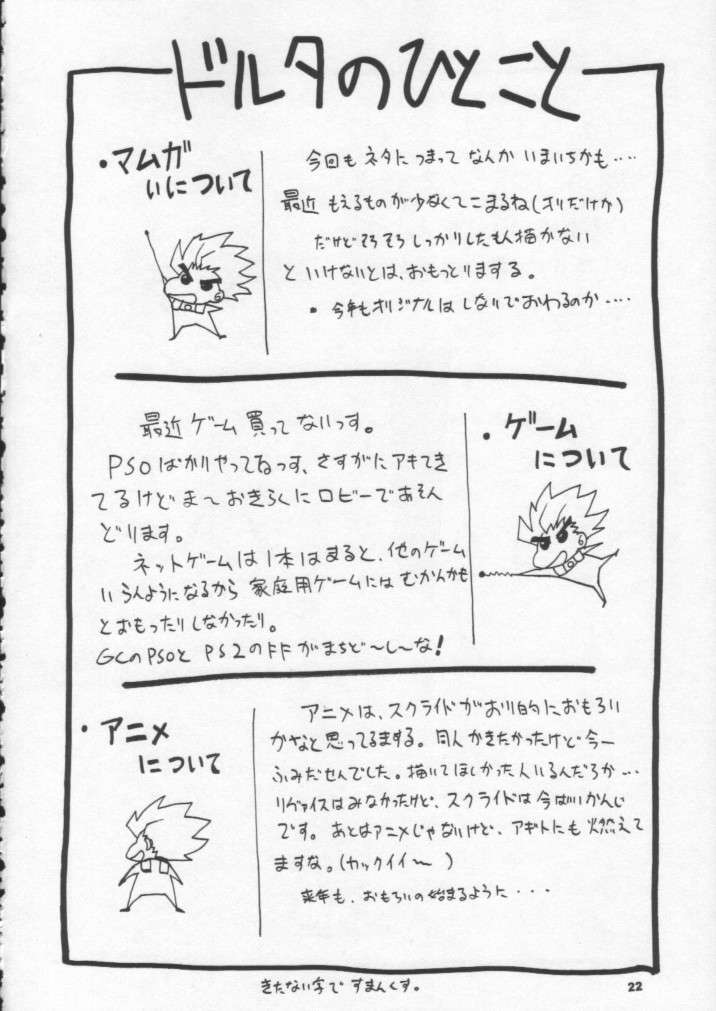 ドルタのひとこと
・マムガ
いについて
今回もネタにつまってなんかいまいちかも‥‥
最近もえるものが少なくてこまるね(オリだけか)
だけどそろそろしっかりしたもん描かない
といけないとは、おもっとりまする。
・今年もオリジナルはしないでおわるのか‥‥
・ゲーム
について
最近ゲーム買ってないっす。
PSOばかりやってるっす、さすがにアキてき
てるけどま〜おきらくにロビーであそん
どります。
ネットゲームは1本はまると、他のゲーム
いらんようになるから家庭用ゲームにはむかんかも
とおもったりしなかったり。
GCのPSOとPS2のFFがまちど〜し〜な!
・アニメ
について
アニメは、スクライドがおり的におもろい
かなと思ってるまする。同人かきたかったけど今一
ふみだせんでした。描いてほしかった人いるんだろか…
リヴァイスはみなかったけど、スクライドは今ばいかんじ
です。あとはアニメじゃないけど、アギトにも燃えて
ますな。(カックイイ〜)
来年も、おもろいの始まるように・・・
きたない字ですまんくす。
22